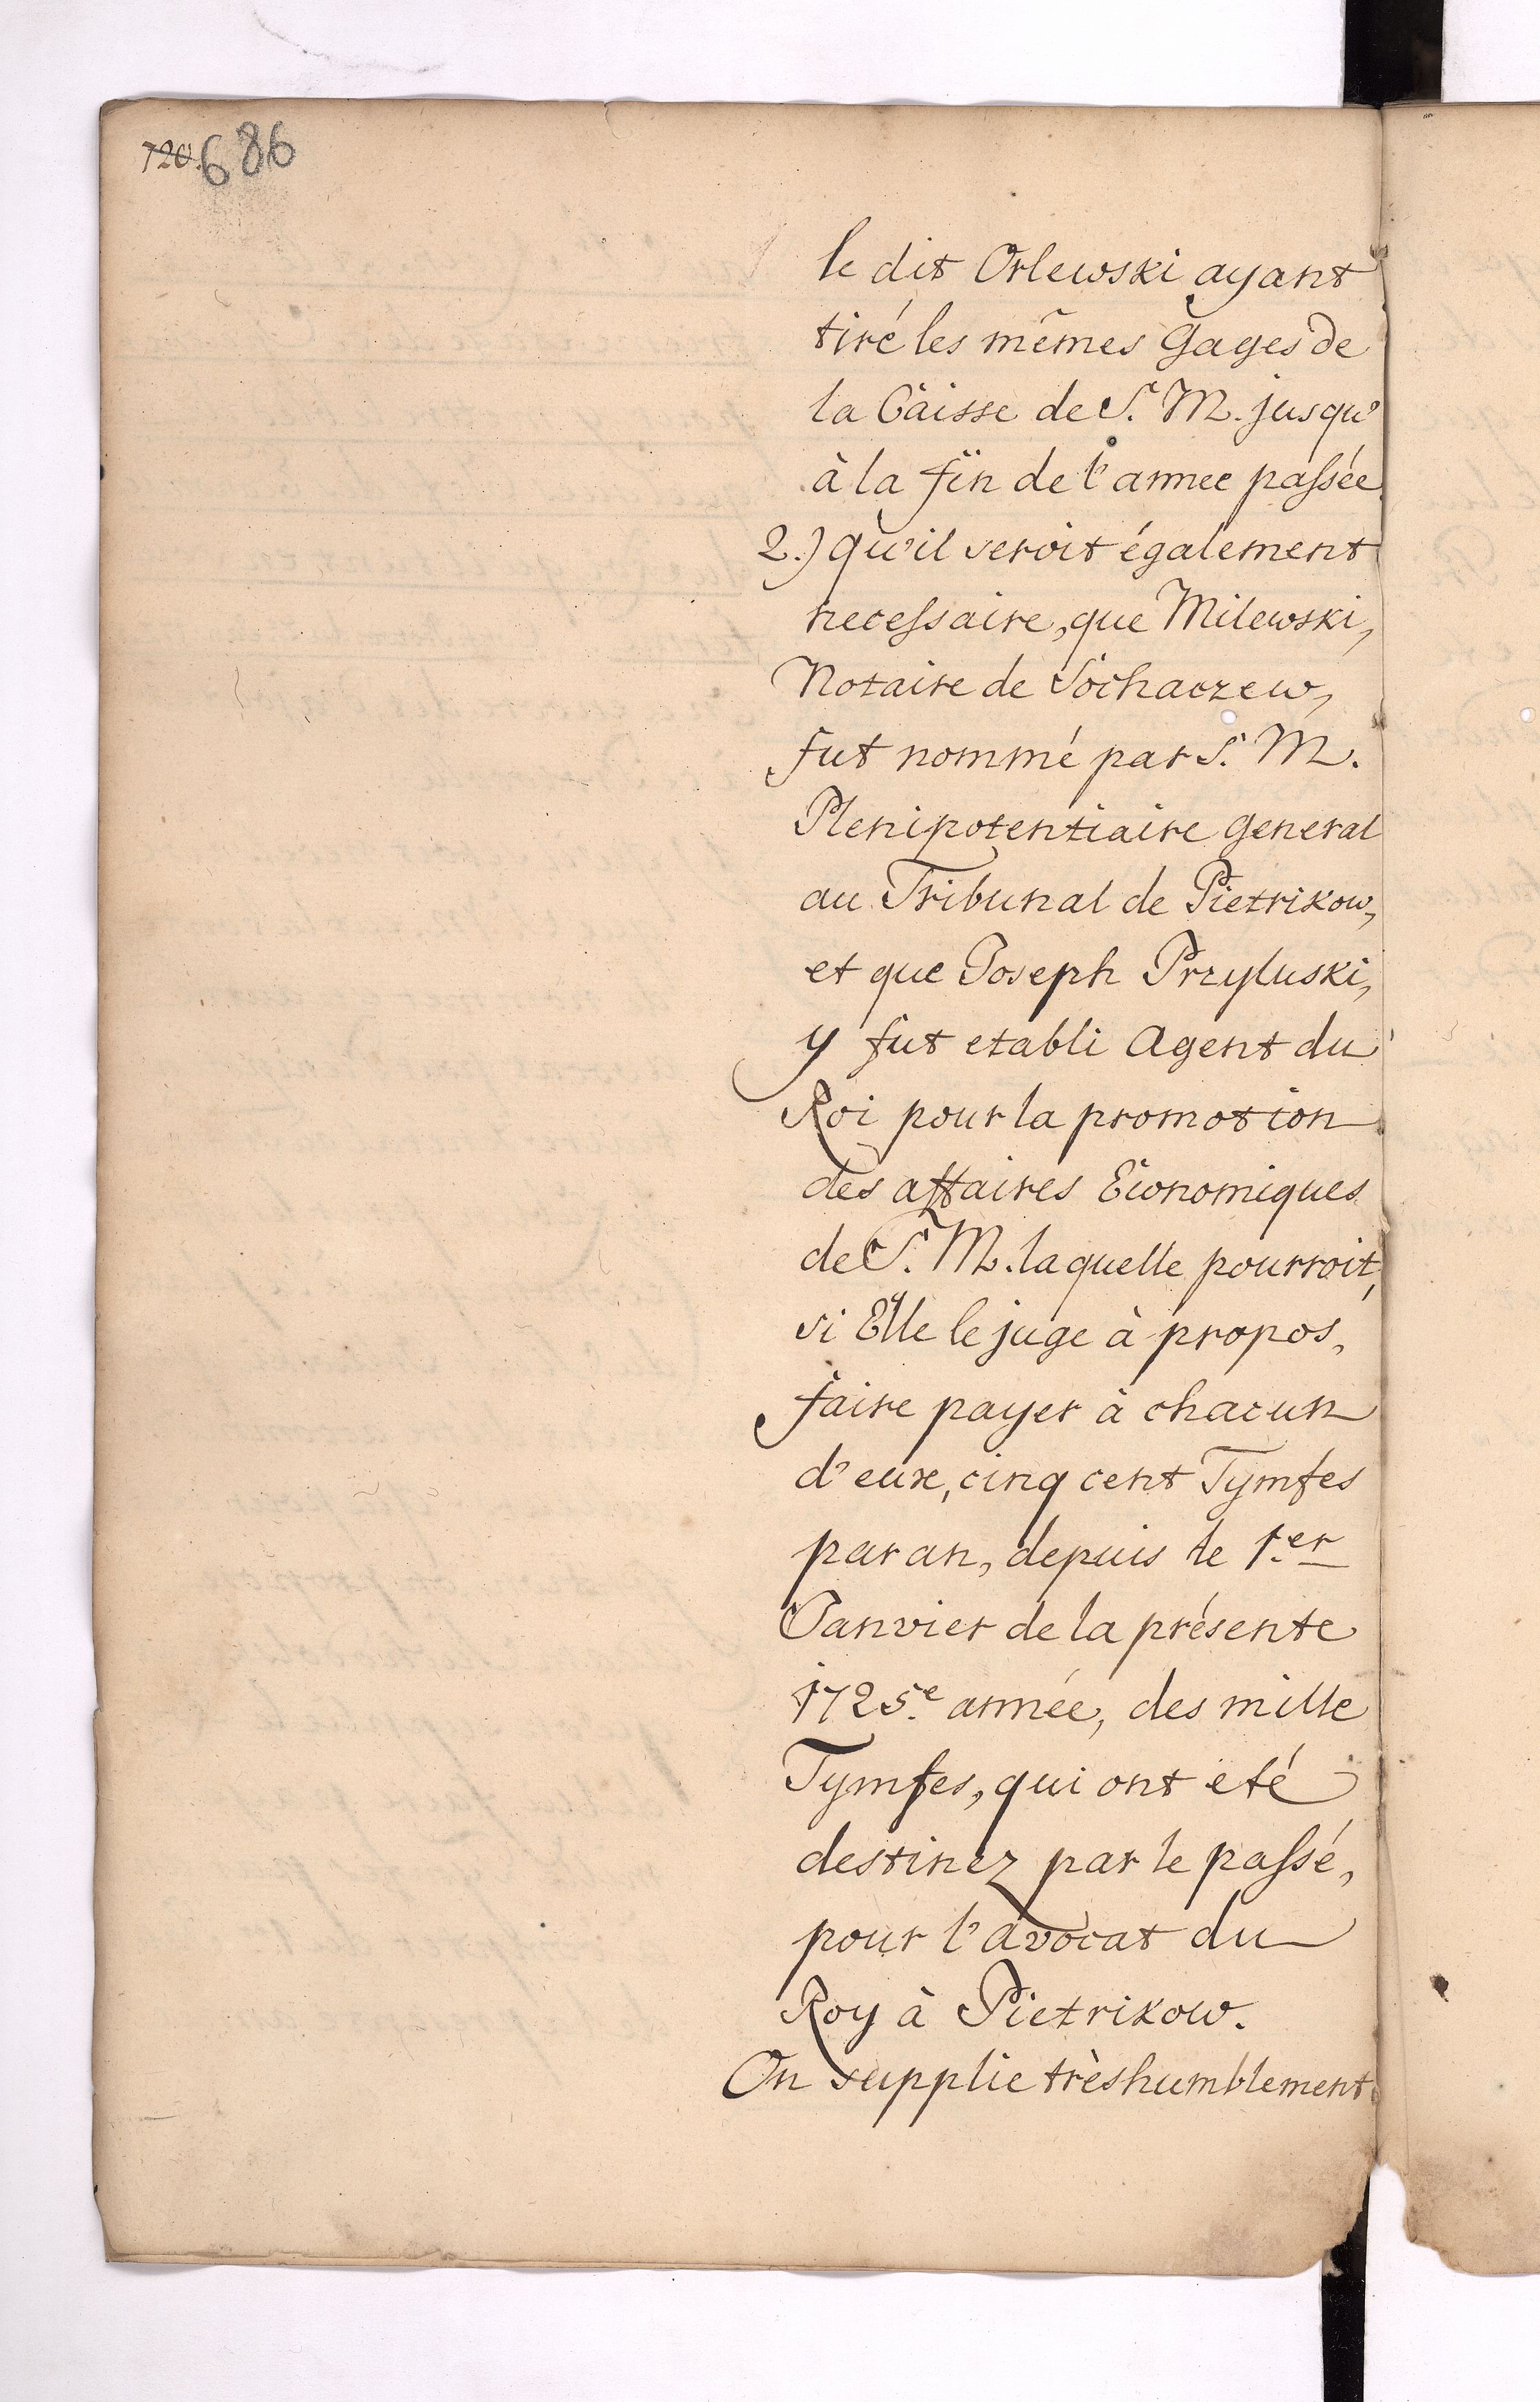 720. 686
le dit Orlewski ayant
tiré les mêmes Gages de
la Caisse de S. M. jusqu'
à la fin de l'annee passée
2.) qu'il seroit également
necessaire, que Milewski,
Notaire de Sochaczew,
fut nommé par S. M.
Plenipotentiaire General
au Tribunal de Pietrikow,
et que Joseph Przyluski,
y fut etabli Agent du
Roi pour la promotion
des affaires Economiques
de S. M. laquelle pourroit,
si Elle le juge à propos,
faire payer à chacun
d'eux, cinq cent Tymfes
par an, depuis le 1.er
Janvier de la présente
1725.e année, des mille
Tymfes, qui ont eté
destinez par le passé,
pour l'avocat du
Roy à Pietrikow.
On supplie trèshumblement